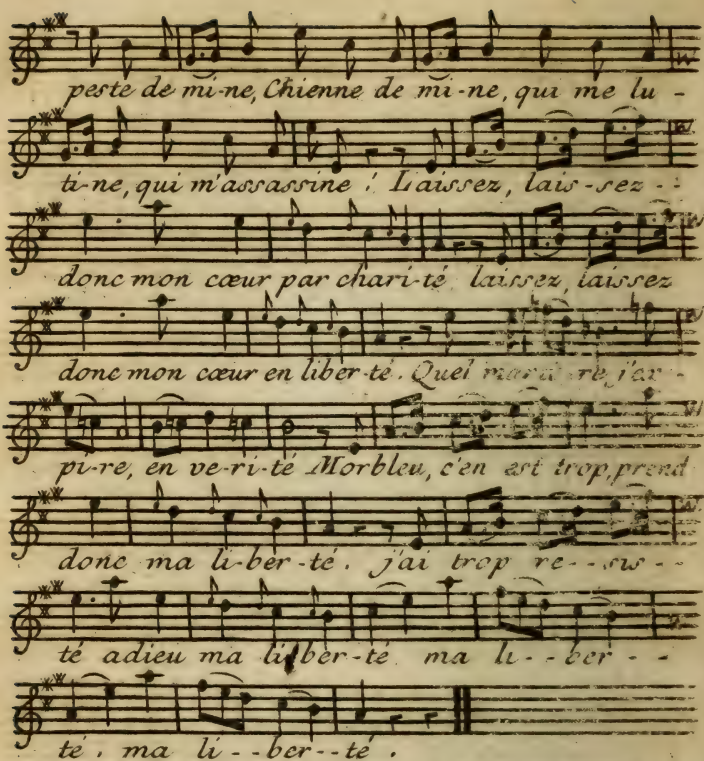 peste de mi-ne, Chienne de mi-ne, qui me lu -
ti-ne, qui m'assassine ! Laissez, lais-sez - -
donc mon cœur par chari-té laissez, laissez
donc mon cœur en liber-té. Quel re j'ex -
pi-re, en ve-ri-té Morbleu, c'en est trop, prend
donc ma li-ber-té. j'ai trop re - - sis - -
té adieu ma liber-té ma li - - ber - -
té. ma li - - ber - - té.